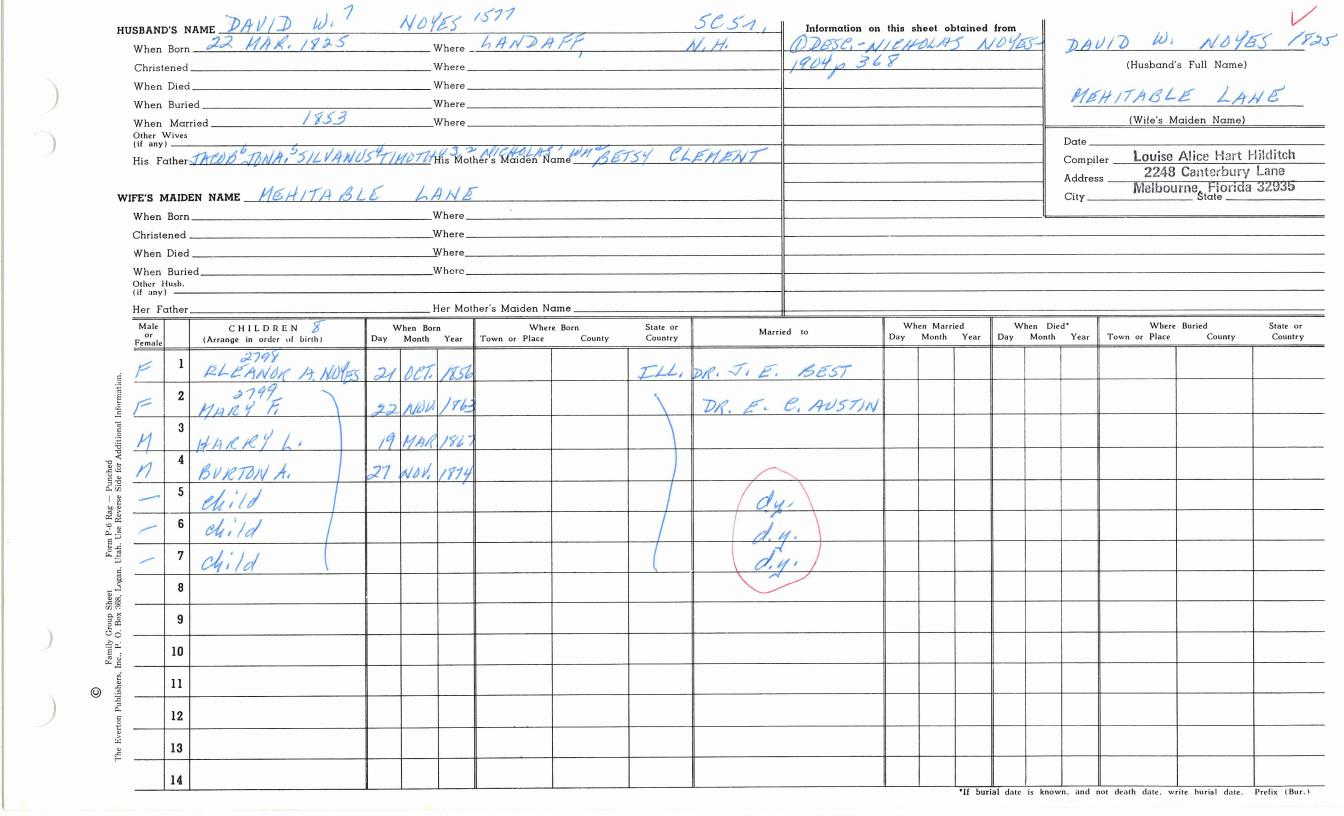 HUSBAND'S NAME DAVID W. 7 NOYES 1577 5C51,
When Born 22 MAR. 1825 Where LANDAFF, N.H.
Christened Where
When Died Where
When Buried Where
When Married 1853 Where
Other Wives
(if any)
His Father JACOB6 JONA.5 SILVANUS4 TIMOTHY3,2 NICHOLAS1 WM His Mother's Maiden Name BETSY CLEMENT
WIFE'S MAIDEN NAME MEHITABLE LANE
When Born Where
Christened Where
When Died Where
When Buried Where
Other Husb.
(if any)
Her Father Her Mother's Maiden Name
Information on this sheet obtained from
① DESC.-NICHOLAS NOYES-
1904 p 368
DAVID W. NOYES 1825
(Husband's Full Name)
MEHITABLE LANE
(Wife's Maiden Name)
Date
Compiler Louise Alice Hart Hilditch
Address 2248 Canterbury Lane
Melbourne, Florida 32935
City State
Male or Female CHILDREN 8 (Arrange in order of birth) When Born Day Month Year Where Born Town or Place County State or Country Married to When Married Day Month Year When Died* Day Month Year Where Buried Town or Place County State or Country
2798
F 1 ELEANOR A. NOYES 21 OCT. 1856 ILL. DR. J. E. BEST
2799
F 2 MARY F. 22 NOV 1863 DR. E. C. AUSTIN
M 3 HARRY L. 19 MAR 1867
M 4 BURTON A. 27 NOV. 1874
— 5 child d.y.
— 6 child d.y.
— 7 child d.y.
8
9
10
11
12
13
14
*If burial date is known, and not death date, write burial date. Prefix (Bur.)
Family Group Sheet Form P-6 Rag — Punched
© The Everton Publishers, Inc., P. O. Box 368, Logan, Utah. Use Reverse Side for Additional Information.